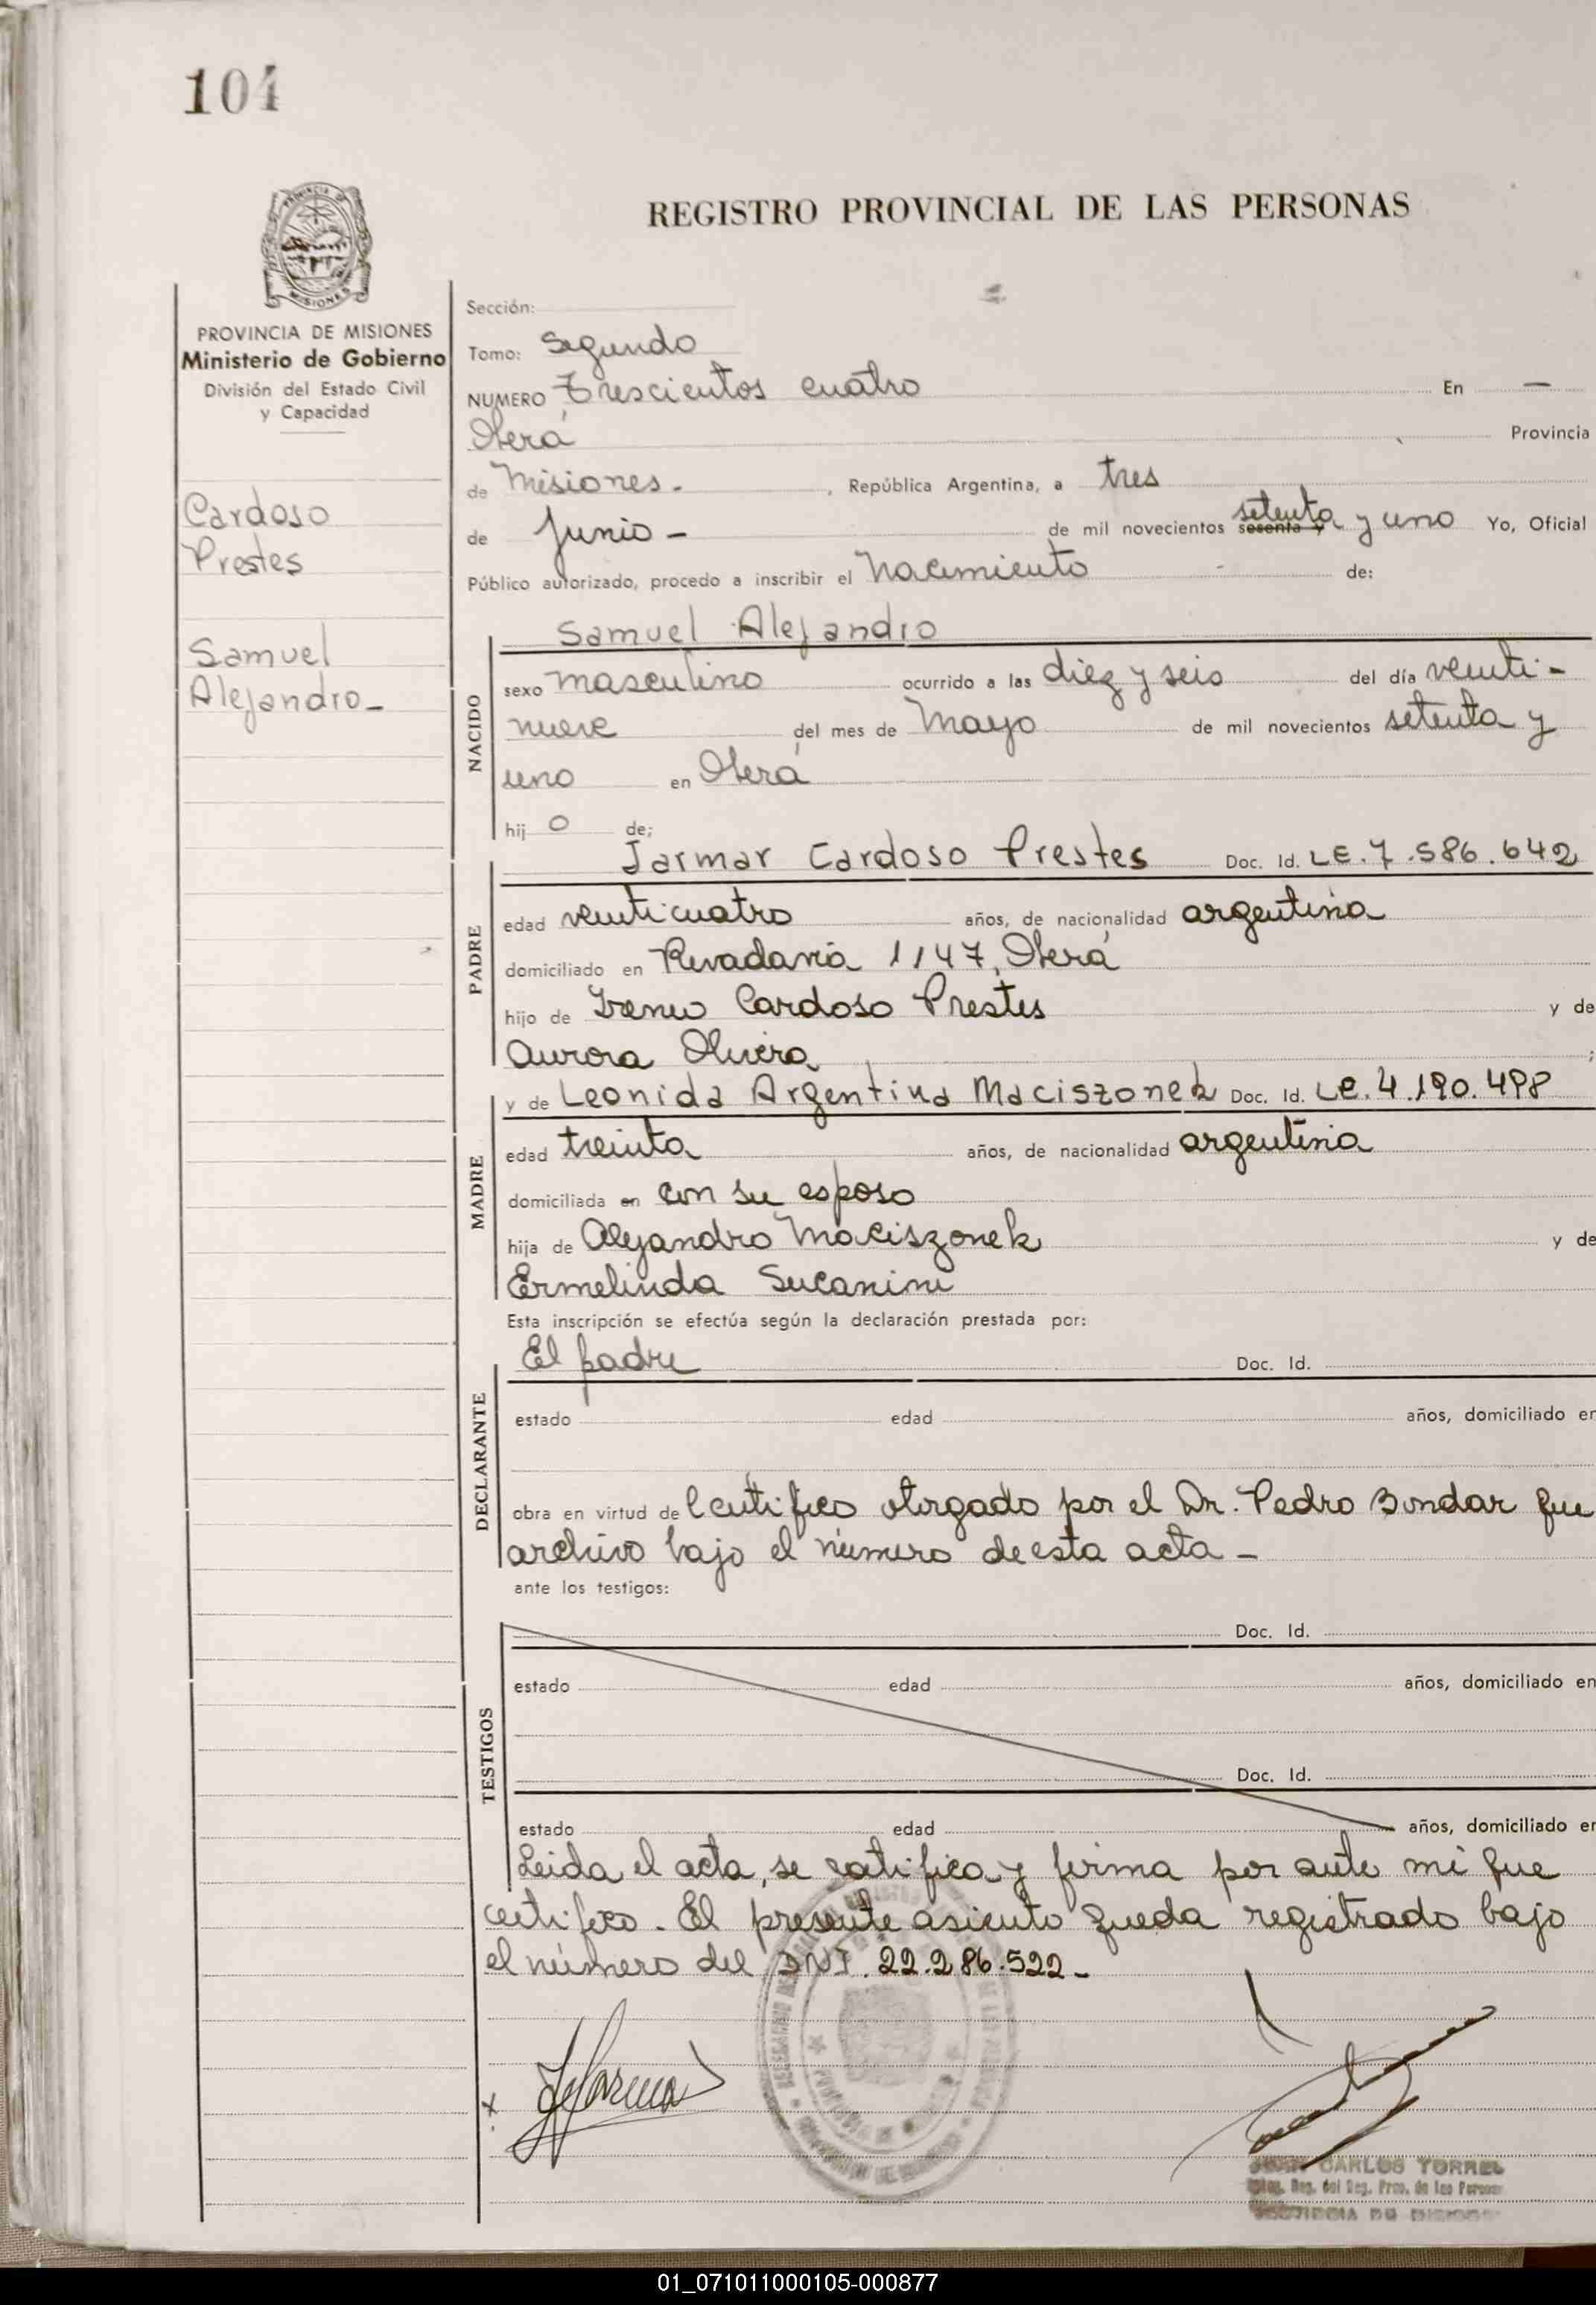 104
REGISTRO PROVINCIAL DE LAS PERSONAS
PROVINCIA DE MISIONES
Ministerio de Gobierno
División del Estado Civil
y Capacidad
Cardoso
Prestes
Samuel
Alejandro_
Sección:
Tomo: Segundo
NUMERO Trescientos cuatro En —
Oberá Provincia
de Misiones. , República Argentina, a tres
de Junio - de mil novecientos sesenta y setenta y uno Yo, Oficial
Público autorizado, procedo a inscribir el Nacimiento de:
Samuel Alejandro
NACIDO
sexo masculino ocurrido a las diez y seis del día veinti-
nueve del mes de Mayo de mil novecientos setenta y
uno en Oberá
hij o de;
Jarmar Cardoso Prestes Doc. Id. LE. 7.586.642
PADRE
edad veinticuatro años, de nacionalidad argentina
domiciliado en Rivadavia 1147, Oberá
hijo de Ireneo Cardoso Prestes y de
Aurora Olivera ;
y de Leonida Argentina Maciszonek Doc. Id. LC. 4.190.498
MADRE
edad treinta años, de nacionalidad argentina
domiciliada en con su esposo
hija de Alejandro Maciszonek y de
Ermelinda Sucanini
Esta inscripción se efectúa según la declaración prestada por:
El padre Doc. Id.
DECLARANTE
estado edad años, domiciliado en
obra en virtud de Certifico otorgado por el Dr. Pedro Bondar que
archivo bajo el número de esta acta -
ante los testigos:
Doc. Id.
TESTIGOS
estado edad años, domiciliado en
Doc. Id.
estado edad años, domiciliado en
Leida el acta, se ratifica y firma por ante mi que
certifico. El presente asiento queda registrado bajo
el número del DNI. 22.286.522-
JUAN CARLOS TORREL
Reg. del Reg. Prov. de las Personas
PROVINCIA DE MISIONES
01_071011000105-000877